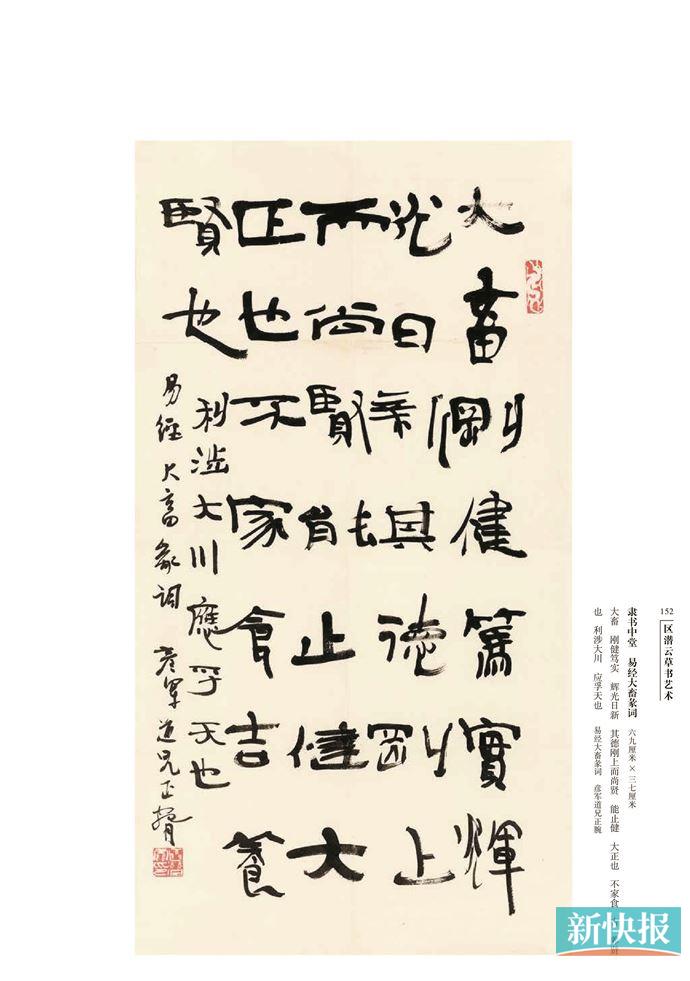 大畜剛健篤實輝
光日新其德剛上
而尚賢能止健大
正也不家食吉養
賢也
利涉大川應孚天也
易經大畜彖詞 彦軍道兄正腕
152 区潜云草书艺术
隶书中堂 易经大畜彖词 六九厘米×三七厘米
大畜 刚健笃实 辉光日新 其德刚上而尚贤 能止健 大正也 不家食
也 利涉大川 应孚天也 易经大畜彖词 彦军道兄正腕
新快报